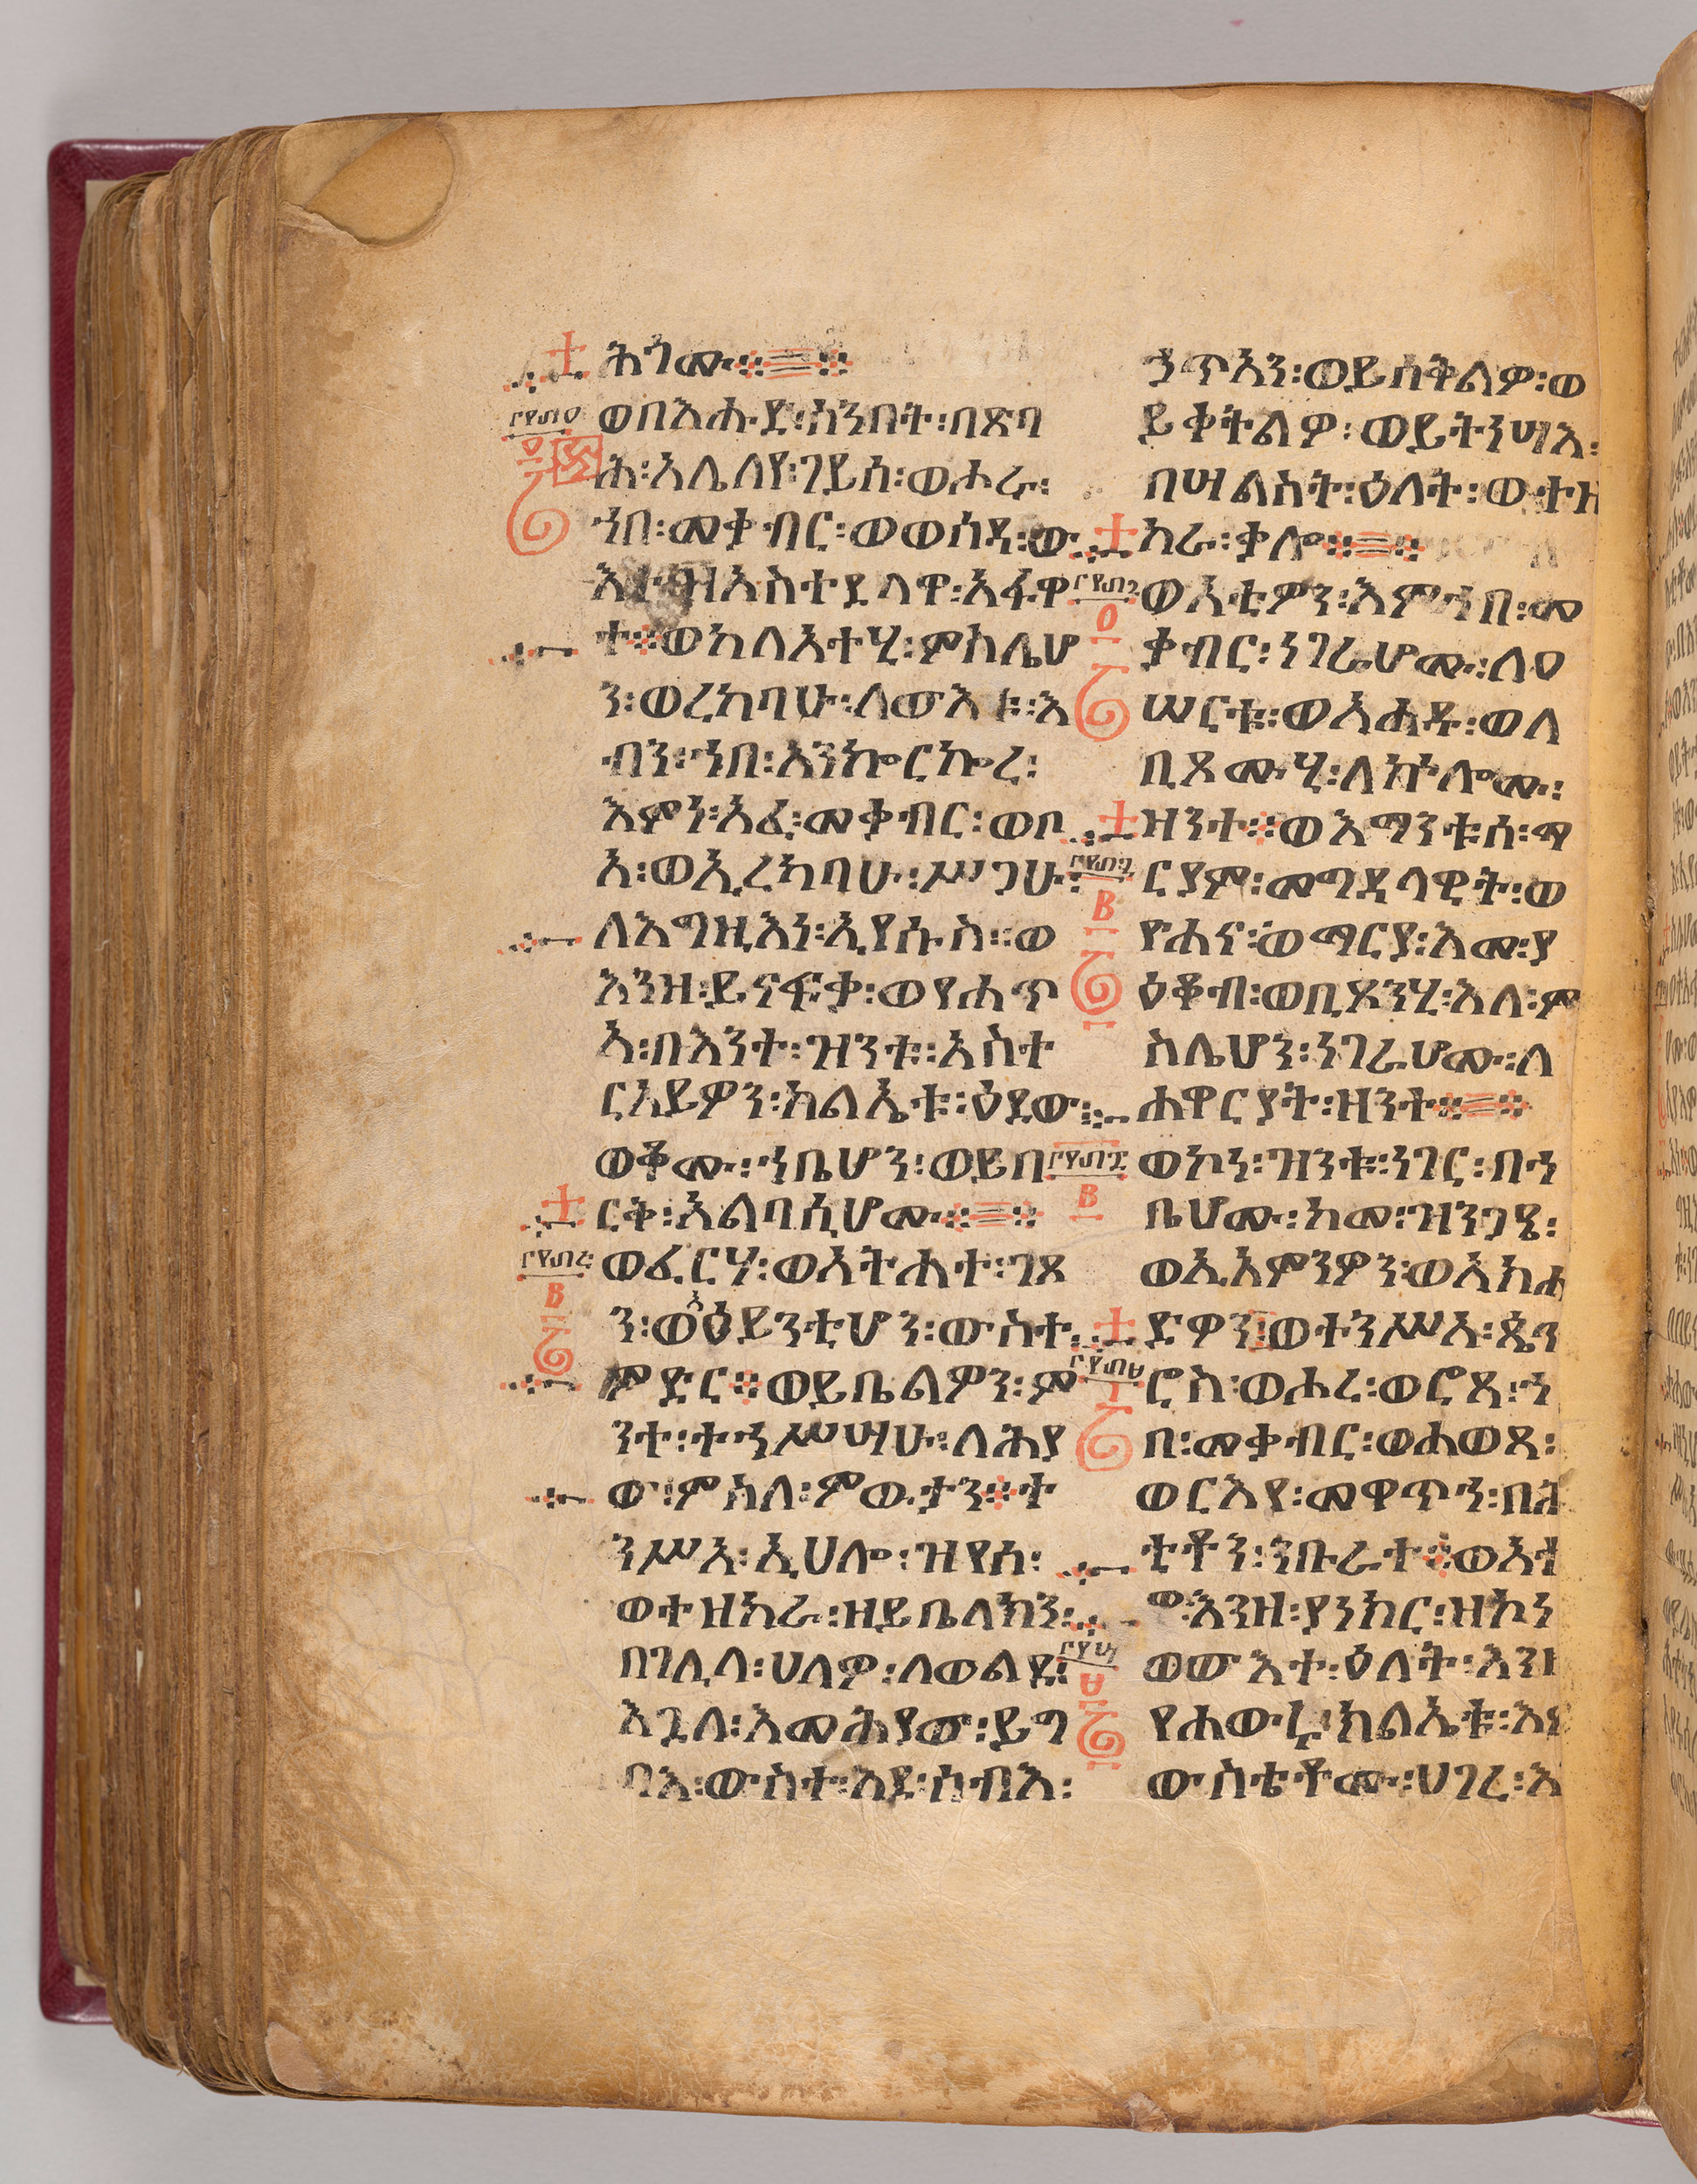 ሕጎሙ፨
ወበእሑድ፡ሰንበት፡በጽባ
ሕ፡አሌለየ፡ገይሰ፡ወሖራ፡
ኀበ፡መቃብር፡ወወሰዳ፡ው
እተ፡ዝአስተደላዋ፡አፋዋ
ተ፨ወካለአተሂ፡ምስሌሆ
ን፡ወረከባሁ፡ለውእቱ፡እ
ብን፡ኀበ፡አንኰርኰረ፡
እምነ፡አፈ፡መቃብር፡ወቦ
አ፡ወኢረከባሁ፡ሥጋሁ፡
ለእግዚእነ፡ኢየሱስ፡፡ወ
እንዘ፡ይናፍቃ፡ወየሐጥ
ኣ፡በእንተ፡ዝንቱ፡አስተ
ርአይዎን፡ክልኤቱ፡ዕደው፡
ወቆሙ፡ኀቤሆን፡ወይበ
ርቅ፡አልባሲሆሙ፨
ወፈርሃ፡ወአትሐተ፡ገጾ
ን፡ወአዕይንቲሆን፡ውስተ
ምድር፨ወይቤልዎን፡ም
ንተ፡ተኀሥሣሁ፡ለሕያ
ው፡ምስለ፡ምውታን፨ት
ንሥአ፡ኢሀሎ፡ዝየሰ፡
ወተዘከራ፡ዘይቤለክን፡
በገሊላ፡ሀለዎ፡ለወልደ፡
እጓለ፡እመሕያው፡ይግ
ባእ፡ውስተ፡እደ፡ሰብእ፡
ኃጥአን፡ወይሰቅልዎ፡ወ
ይቀትልዎ፡ወይትነሣእ፡
በሣልስት፡ዕለት፡ወተዘ
ከራ፡ቃሎ፨
ወአቲዎን፡እምኀበ፡መ
ቃብር፡ነገራሆሙ፡ለዐ
ሠርቱ፡ወአሐዱ፡ወለ
ቢጾሙሂ፡ለኵሎሙ፡
ዝንተ፨ወእማንቱሰ፡ማ
ርያም፡መግደላዊት፡ወ
ዮሐና፡ወማርያ፡እሙ፡ያ
ዕቆብ፡ወቢጾንሂ፡እለ፡ም
ስሌሆን፡ነገራሆሙ፡ለ
ሐዋርያት፡ዘንተ፨
ወኮነ፡ዝንቱ፡ነገር፡በኀ
ቤሆሙ፡ከመ፡ዝንጋዔ፡
ወኢአምንዎን፡ወአክሐ
ድዎን፡ወተንሥአ፡ጴጥ
ሮስ፡ወሖረ፡ወሮጸ፡ኀ
በ፡መቃብር፡ወሐወጸ፡
ወርእየ፡መዋጥሐ፡በሕ
ቲቶን፡ንቡራተ፨ወአተ
ወ፡እንዘ፡ያነክር፡ዘኮነ
ወውእተ፡ዕለት፡እንዘ
የሐውሩ፡ክልኤቱ፡እም
ውስቴቶሙ፡ሀገረ፡እ